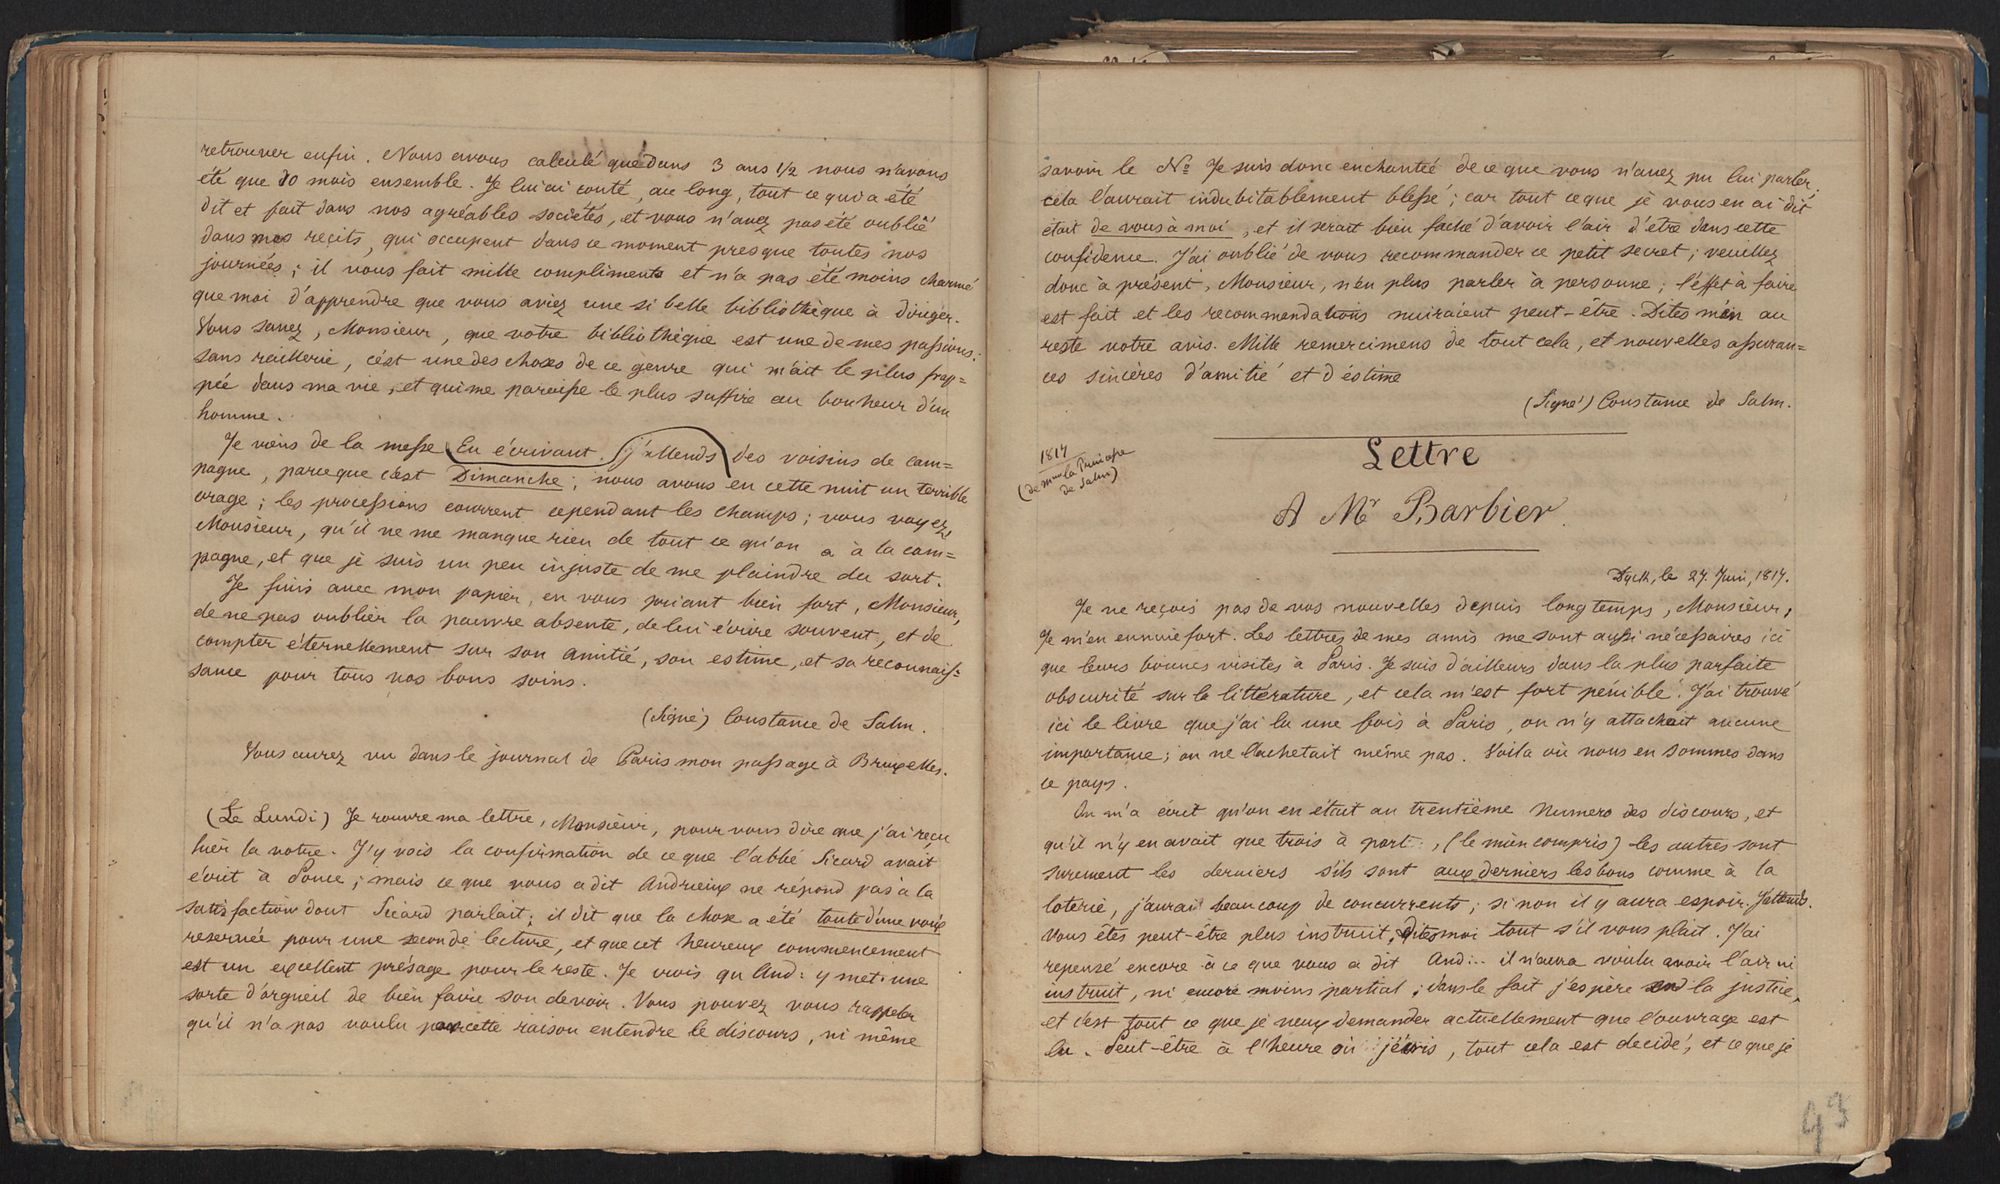 retrouver enfin. Nous avons calculé que dans 3 ans 1/2 nous n'avons
été que 10 mois ensemble. Je lui ai conté, au long, tout ce qui a été
dit et fait dans nos agréables sociétés, et vous n'avez pas été oublié
dans mes reçits, qui occupent dans ce moment presque toutes nos
journées; il vous fait mille compliments et n'a pas été moins charmé
que moi d'apprendre que vous aviez une si belle bibliothèque à diriger.
Vous savez, Monsieur, que votre bibliothèque est une de mes passions:
sans raillerie, c'est une des choses de ce genre qui m'ait le plus frap=
pée dans ma vie, et qui me paroisse le plus suffire au bonheur d'un
homme.
Je viens de la messe En écrivant. j'attends des voisins de cam=
pagne, parceque c'est Dimanche; nous avons eu cette nuit un terrible
orage; les processions courrent cependant les champs; vous voyez,
Monsieur, qu'il ne me manque rien de tout ce qu'on a à la cam=
pagne, et que je suis un peu injuste de me plaindre du sort.
Je finis avec mon papier, en vous priant bien fort, Monsieur,
de ne pas oublier la pauvre absente, de lui écrire souvent, et de
compter éternellement sur son amitié, son estime, et sa reconnais=
sance pour tous vos bons soins.
(Signé) Constance de Salm.
Vous aurez vu dans le journal de Paris mon passage à Bruxelles.
(Le Lundi) Je rouvre ma lettre, Monsieur, pour vous dire que j'ai reçu
hier la votre. J'y vois la confirmation de ce que l'abbé Sicard avait
écrit à Pouce; mais ce que vous a dit Andrieux ne répond pas à la
satisfaction dont Sicard parlait; il dit que la chose a été toute d'une voix
reservée pour une seconde lecture, et que cet heureux commencement
est un excellent présage pour le reste. Je crois qu'And: y met une
sorte d'orgueil de bien faire son devoir. Vous pouvez vous rappeler
qu'il n'a pas voulu par cette raison entendre le discours, ni même
savoir le No. Je suis donc enchantée de ce que vous n'avez pu lui parler;
cela l'aurait indubitablement blessé; car tout ce que je vous en ai dit
était de vous à moi, et il serait bien faché d'avoir l'air d'être dans cette
confidence. J'ai oublié de vous recommander ce petit secret; veuillez
donc à présent, Monsieur, n'en plus parler à personne; l'effet à faire
est fait et les recommendations nuiraient peut-être. Dites m'en au
reste votre avis. Mille remercimens de tout cela, et nouvelles assuran=
ces sincères d'amitié et d'éstime
(Signé) Constance de Salm.
1817
(de Mme la Princesse
de Salm)
Lettre
A Mr Barbier.
Dyck, le 27. Juin, 1817.
Je ne reçois pas de vos nouvelles depuis longtemps, Monsieur,
Je m'en ennuie fort. Les lettres de mes amis me sont aussi nécessaires ici
que leurs bonnes visites à Paris. Je suis d'ailleurs dans la plus parfaite
obscurité sur la littérature, et cela m'est fort pénible. J'ai trouvé
ici le livre que j'ai lu une fois à Paris, on n'y attachait aucune
importance; on ne l'achetait même pas. Voila où nous en sommes dans
ce pays.
On m'a écrit qu'on en était au trentième Numero des discours, et
qu'il n'y en avait que trois à part, (le mien compris) les autres sont
surement les derniers s'ils sont aux derniers les bons comme à la
loterie, j'aurai beaucoup de concurrents; si non il y aura espoir. J'attends.
Vous êtes peut-être plus instruit, dites moi tout s'il vous plait. J'ai
repensé encore à ce que vous a dit And... il n'aura voulu avoir l'air ni
instruit, ni encore moins partial; dans le fait j'espère en la justice,
et c'est tout ce que je veux demander actuellement que l'ouvrage est
lu. Peut-être à l'heure où j'écris, tout cela est decidé, et ce que je
43